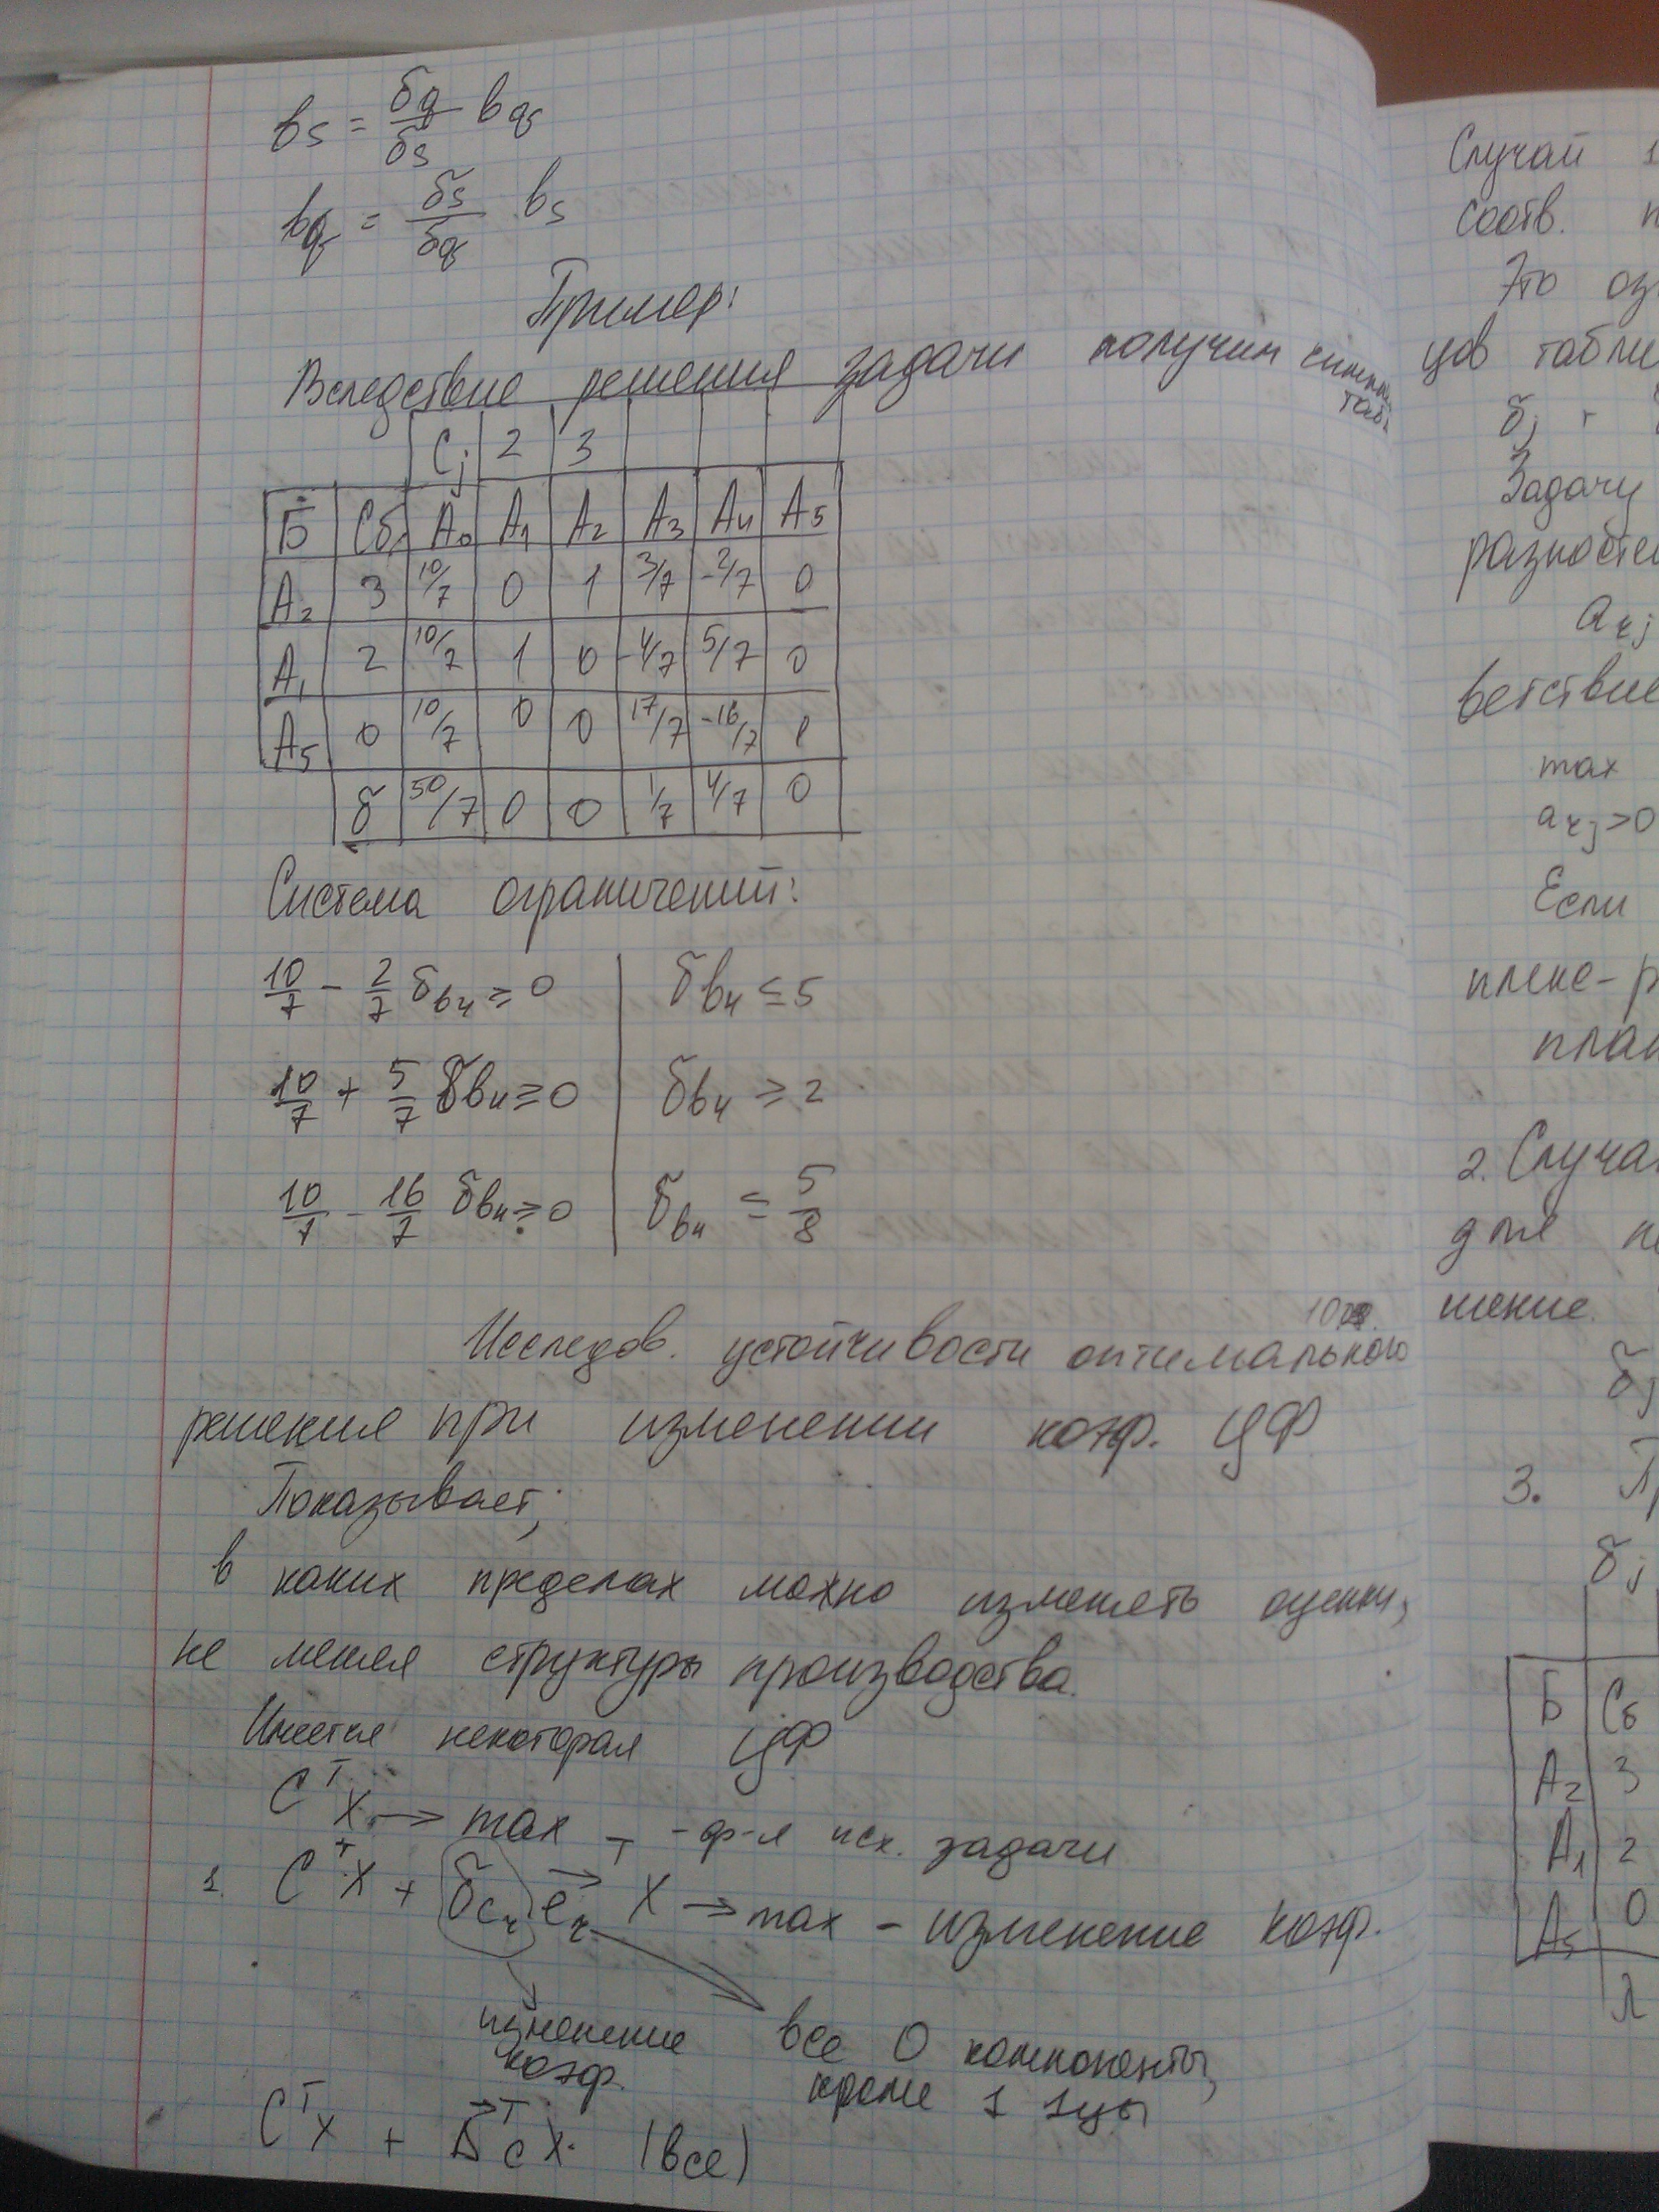 bs = δq/δs bq
bq = δs/δq bs
Пример:
Вследствие решения задачи получим симпл. табл.
Cj 2 3
Б Cб A0 A1 A2 A3 A4 A5
A2 3 10/7 0 1 3/7 -2/7 0
A1 2 10/7 1 0 -4/7 5/7 0
A5 0 10/7 0 0 17/7 -16/7 1
δ 50/7 0 0 1/7 4/7 0
Система ограничений:
10/7 - 2/7 δb4 ≥ 0 | δb4 ≤ 5
10/7 + 5/7 δb4 ≥ 0 | δb4 ≥ 2
10/7 - 16/7 δb4 ≥ 0 | δb4 ≤ 5/8
Исследов. устойчивости оптимального
решения при изменении коэф. ЦФ
Показывает,
в каких пределах можно изменять оценки,
не меняя структуры производства.
Имеется некоторая ЦФ
C^T X → max - ф-я исх. задачи
1. C^T X + δcr er^T X → max - изменение коэф.
изменение все 0 компоненты,
коэф. кроме 1 1цы
C^T X + Δc^T X. (все)
Случай 1
соотв.
Это оз
цов табли
δj
Задачу
разносте
arj
ветствие
max
arj>0
Если
план
2. Случа
для
шение
δj
3.
δj
Б Cб
A2 3
A1 2
A5 0